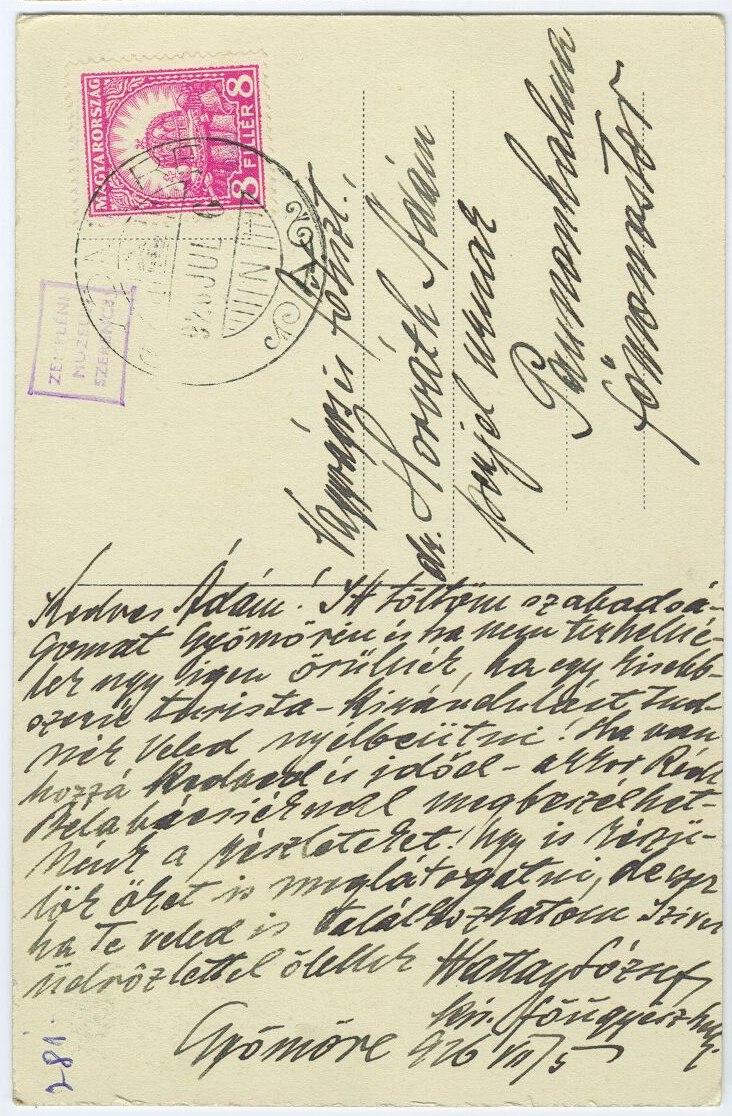 MAGYARORSZÁG
8 FILLÉR 8
926 JUL 6
ZEMPLÉNI
MÚZEUM
SZERENCS
dr. Horváth Ádám
Pannonhalma
Kedves Ádám! Itt töltöm szabadsá-
gomat Gyömörén és ha nem terhellé-
lek úgy igen örülnék, ha egy kisebb-
szerű turista-kirándulást tud-
nék Veled nyélbeütni! Ha van
hozzá kedved és időd - akkor
Béla bácsiéknál megbeszélhet-
nénk a részleteket! Úgy is készü-
lök őket is meglátogatni, de
ha Te veled is találkozhatom Szives
üdvözlettel ölellek József
Gyömöre 926 VII/5
281